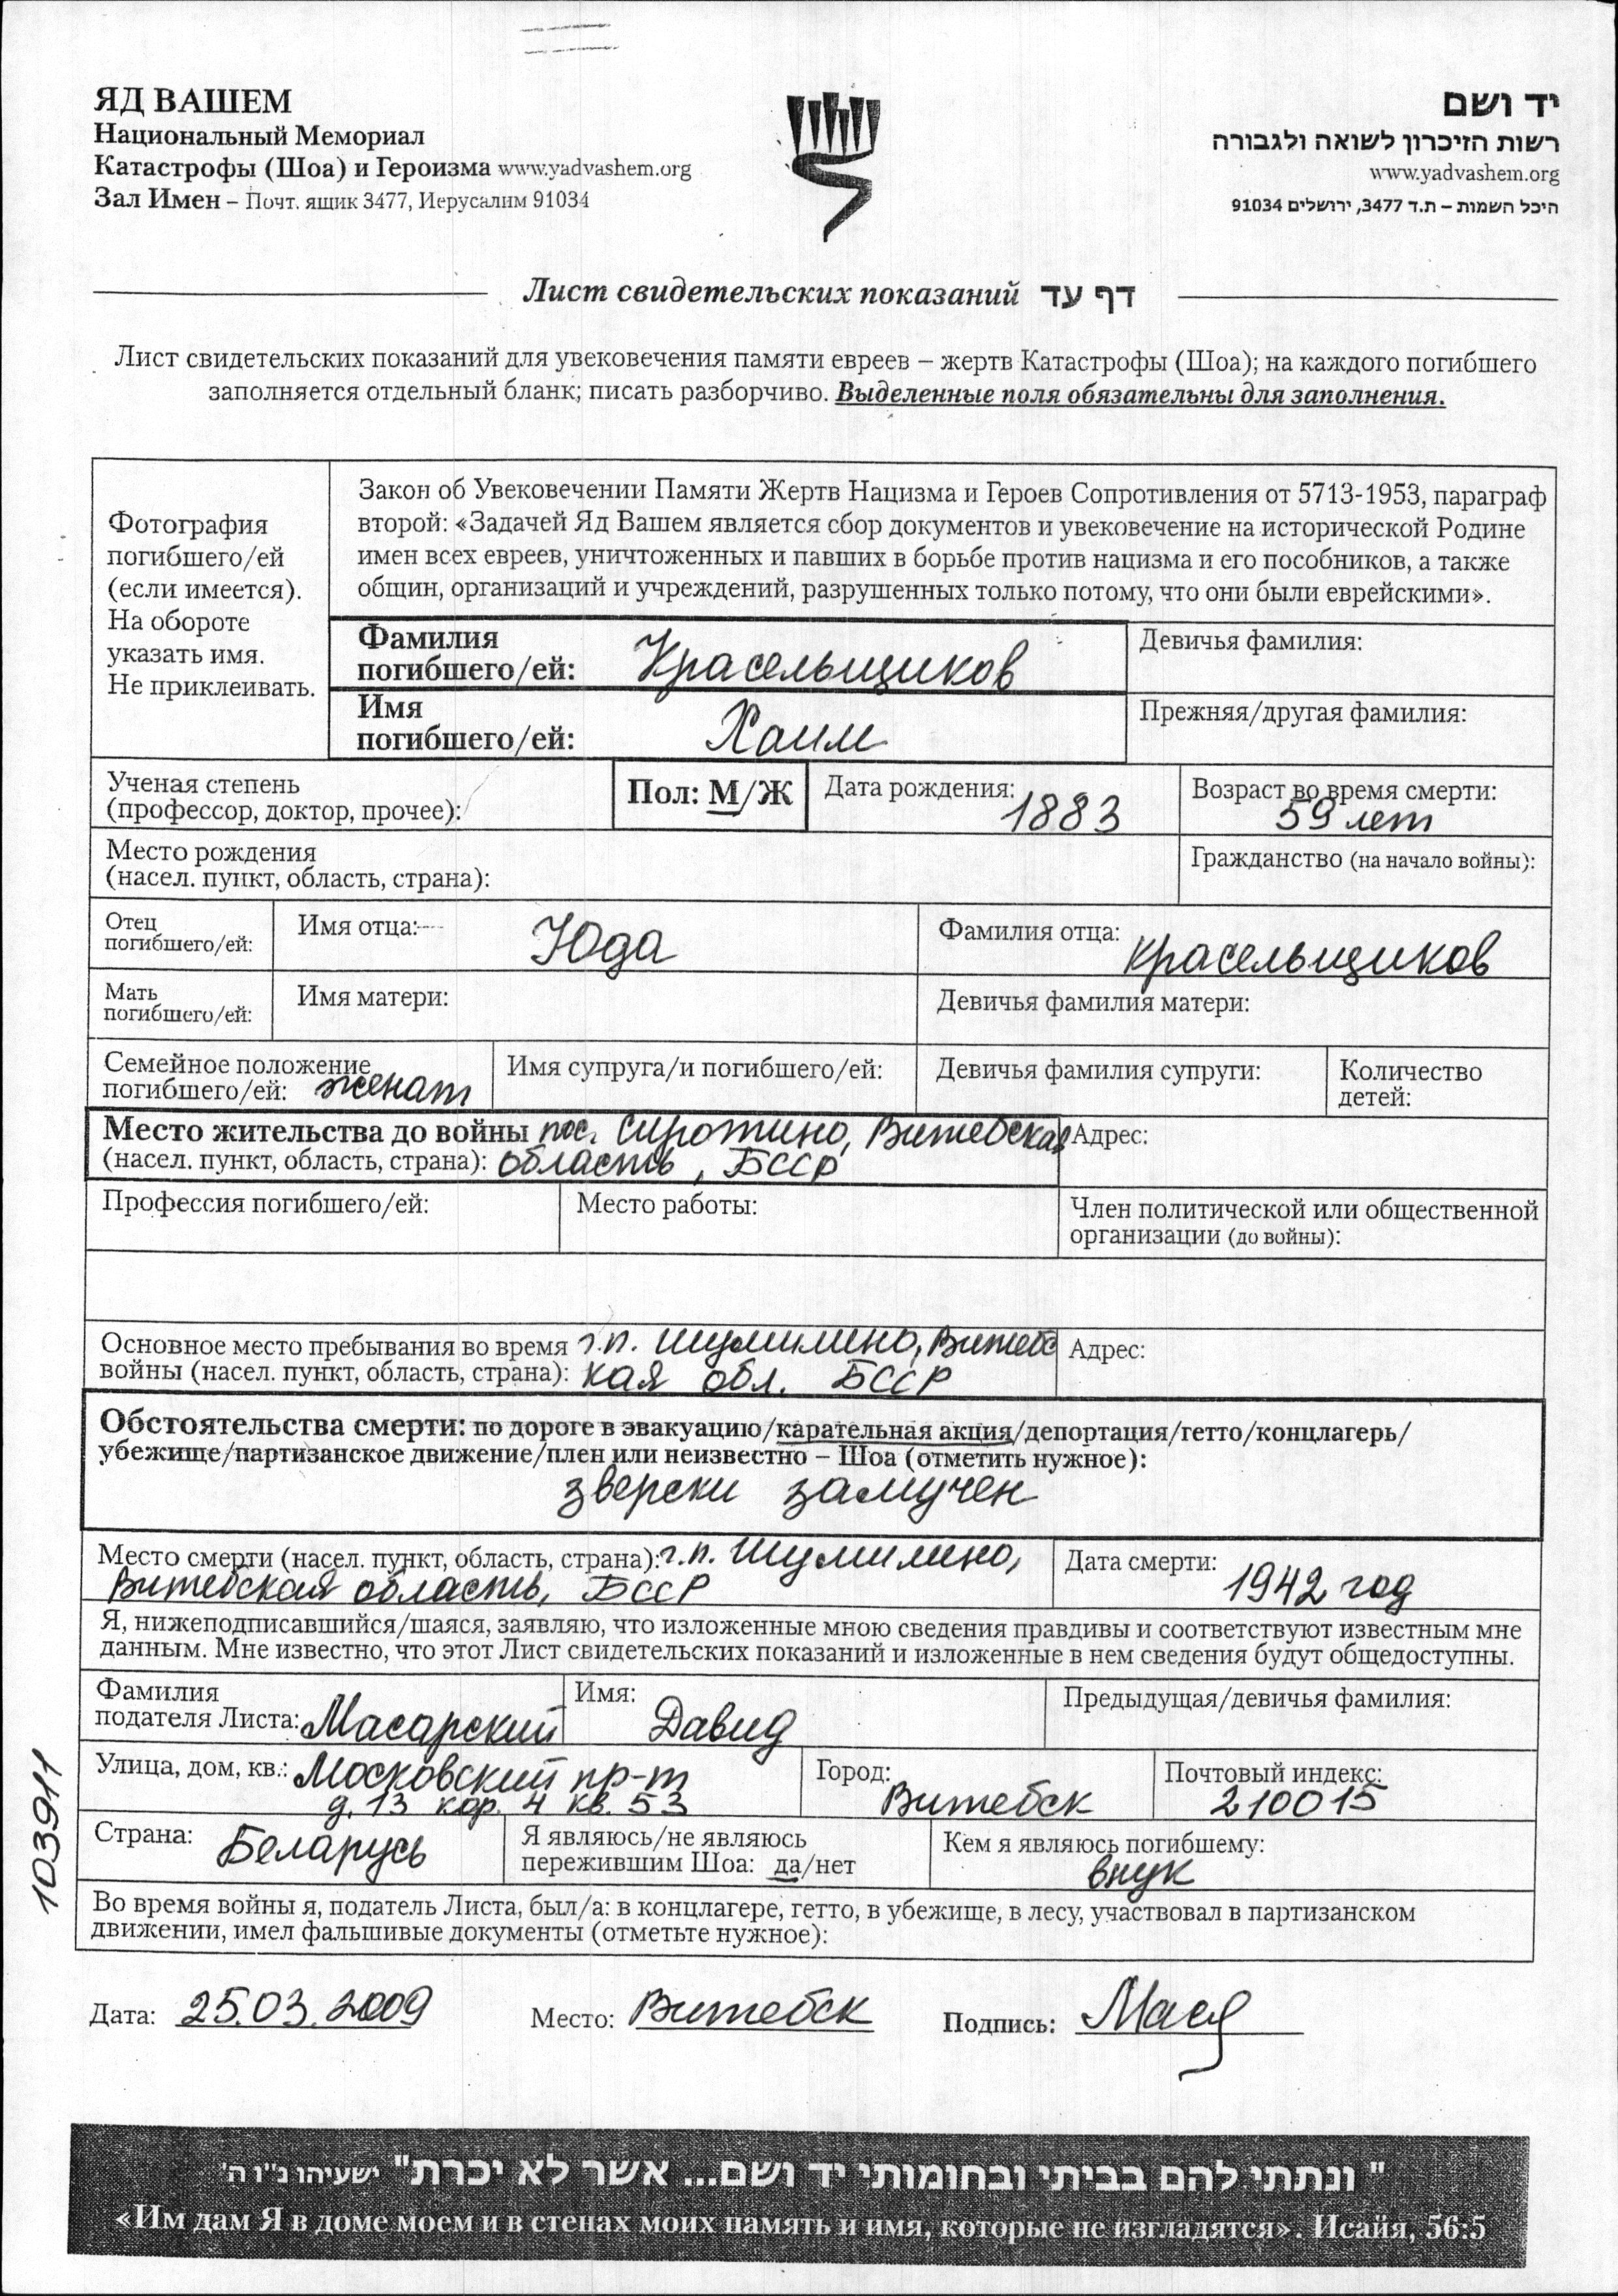 ЯД ВАШЕМ
Национальный Мемориал
Катастрофы (Шоа) и Героизма www.yadvashem.org
Зал Имен – Почт. ящик 3477, Иерусалим 91034
יד ושם
רשות הזיכרון לשואה ולגבורה
www.yadvashem.org
היכל השמות – ת.ד 3477, ירושלים 91034
Лист свидетельских показаний דף עד
Лист свидетельских показаний для увековечения памяти евреев – жертв Катастрофы (Шоа); на каждого погибшего
заполняется отдельный бланк; писать разборчиво. Выделенные поля обязательны для заполнения.
Фотография
погибшего/ей
(если имеется).
На обороте
указать имя.
Не приклеивать.
Закон об Увековечении Памяти Жертв Нацизма и Героев Сопротивления от 5713-1953, параграф
второй: «Задачей Яд Вашем является сбор документов и увековечение на исторической Родине
имен всех евреев, уничтоженных и павших в борьбе против нацизма и его пособников, а также
общин, организаций и учреждений, разрушенных только потому, что они были еврейскими».
Фамилия
погибшего/ей: Красельщиков
Девичья фамилия:
Имя
погибшего/ей: Хаим
Прежняя/другая фамилия:
Ученая степень
(профессор, доктор, прочее):
Пол: М/Ж
Дата рождения: 1883
Возраст во время смерти:
59 лет
Место рождения
(насел. пункт, область, страна):
Гражданство (на начало войны):
Отец
погибшего/ей:
Имя отца: Юда
Фамилия отца: Красельщиков
Мать
погибшего/ей:
Имя матери:
Девичья фамилия матери:
Семейное положение
погибшего/ей: женат
Имя супруга/и погибшего/ей:
Девичья фамилия супруги:
Количество
детей:
Место жительства до войны пос. Сиротино, Витебская
(насел. пункт, область, страна): область, БССР
Адрес:
Профессия погибшего/ей:
Место работы:
Член политической или общественной
организации (до войны):
Основное место пребывания во время г.п. Шумилино, Витебс
войны (насел. пункт, область, страна): кая обл. БССР
Адрес:
Обстоятельства смерти: по дороге в эвакуацию/карательная акция/депортация/гетто/концлагерь/
убежище/партизанское движение/плен или неизвестно – Шоа (отметить нужное):
зверски замучен
Место смерти (насел. пункт, область, страна): г.п. Шумилино,
Витебская область, БССР
Дата смерти: 1942 год
Я, нижеподписавшийся/шаяся, заявляю, что изложенные мною сведения правдивы и соответствуют известным мне
данным. Мне известно, что этот Лист свидетельских показаний и изложенные в нем сведения будут общедоступны.
Фамилия
подателя Листа: Масарский
Имя: Давид
Предыдущая/девичья фамилия:
Улица, дом, кв.: Московский пр-т
д. 13 кор. 4 кв. 53
Город: Витебск
Почтовый индекс:
210015
Страна: Беларусь
Я являюсь/не являюсь
пережившим Шоа: да/нет
Кем я являюсь погибшему:
внук
Во время войны я, податель Листа, был/а: в концлагере, гетто, в убежище, в лесу, участвовал в партизанском
движении, имел фальшивые документы (отметьте нужное):
103911
Дата: 25.03.2009 Место: Витебск Подпись:
" ונתתי להם בביתי ובחומותי יד ושם... אשר לא יכרת" ישעיהו נ"ו ה'
«Им дам Я в доме моем и в стенах моих память и имя, которые не изгладятся». Исайя, 56:5